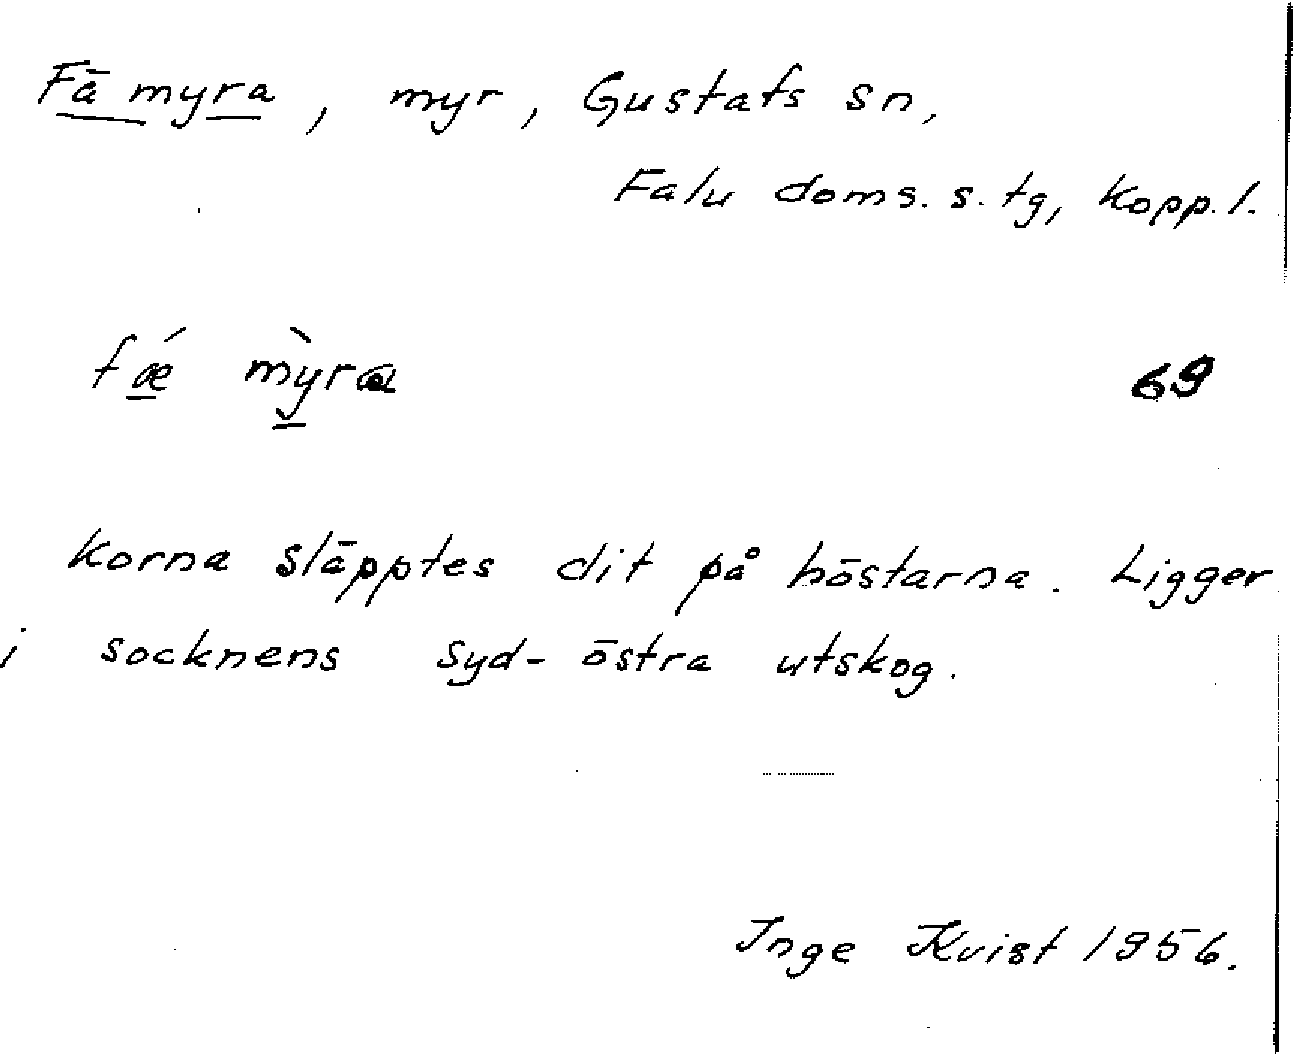 Fämyra, myr, Gustafs sn,
Falu doms. s. tg, Kopp. l.
fǽ mỳra 69
Korna släpptes dit på höstarna. Ligger
i socknens syd-östra utskog.
Inge Kvist 1956.